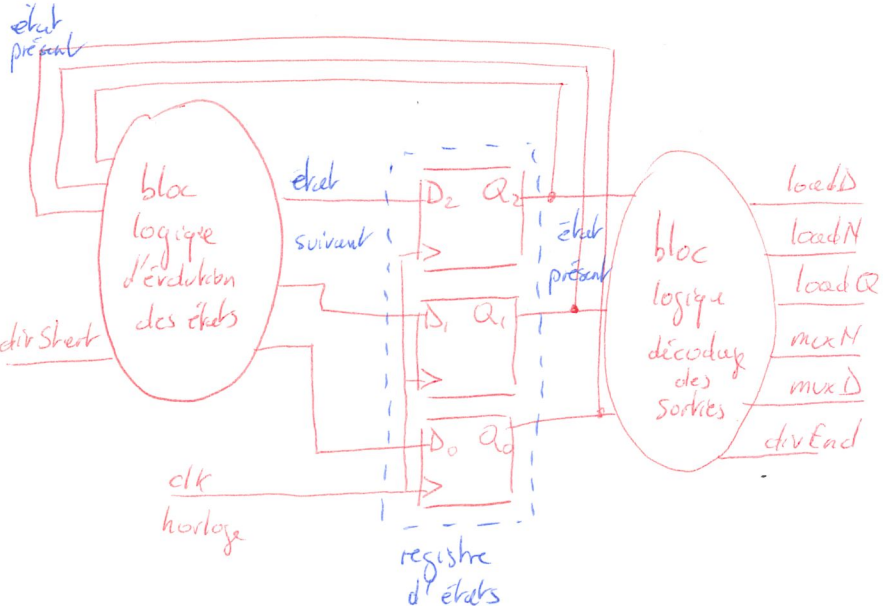 état
présent
bloc
logique
d'évolution
des états
divStart
clk
horloge
état
suivant
D₂ Q₂
D₁ Q₁
D₀ Q₀
registre
d'états
état
présent
bloc
logique
décodage
des
sorties
loadD
loadN
loadQ
muxN
muxD
divEnd